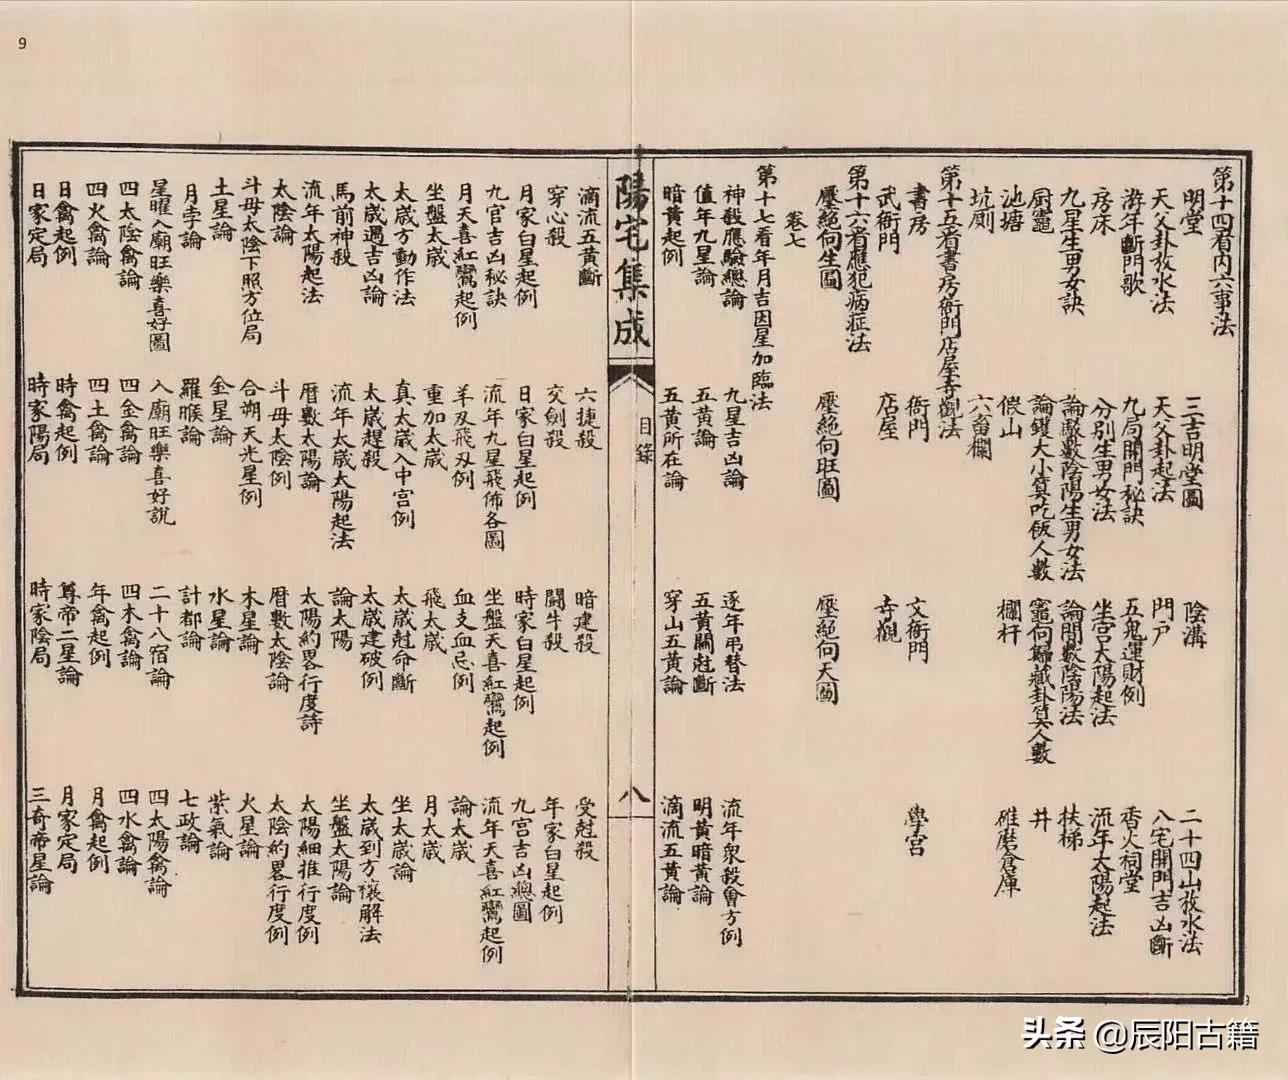 9
第十四看內六事法
明堂　三吉明堂圖　陰溝　二十四山放水法
天父卦放水法　天父卦起法　門戶　八宅開門吉凶斷
游年斷門歌　九局開門秘訣　五鬼運財例　香火祠堂
房床　分別生男女法　坐宮太陽起法　流年太陽起法
九星生男女訣　論敵數陰陽生男女法　論間數陰陽法　扶梯
厨竈　論鑊大小算吃飯人數　竈向歸藏卦算人數　井
池塘　假山　欄杆　碓磨倉庫
坑厠　六畜欄
第十五看書房衙門店屋寺觀法
書房　衙門　文衙門　學宮
武衙門　店屋　寺觀
第十六看應犯病症法
壓絕向生圖　壓絕向旺圖　壓絕向天圖
卷七
第十七看年月吉凶星加臨法
神殺應驗總論　九星吉凶論　逐年吊替法　流年衆殺會方例
值年九星論　五黃論　五黃關尅斷　明黃暗黃論
暗黃起例　五黃所在論　穿山五黃論　滴流五黃論
陽宅集成
目錄
八
滴流五黃斷　六捷殺　暗建殺　受尅殺
穿心殺　交劍殺　鬪牛殺　年家白星起例
月家白星起例　日家白星起例　時家白星起例　九宮吉凶總圖
九宮吉凶秘訣　流年九星飛佈各圖　坐盤天喜紅鸞起例　流年天喜紅鸞起例
月天喜紅鸞起例　羊刄飛刄例　血支血忌例　論太歲
坐盤太歲　重加太歲　飛太歲　月太歲
太歲方動作法　真太歲入中宮例　太歲尅命斷　坐太歲論
太歲遇吉凶論　太歲趕殺　太歲建破例　太歲到方禳解法
馬前神殺　流年太歲太陽起法　論太陽　坐盤太陽論
流年太陽起法　曆數太陽論　太陽約畧行度詩　太陽細推行度例
太陰論　斗母太陰例　曆數太陰論　太陰約畧行度例
斗母太陰下照方位局　合朔天光星例　木星論　火星論
土星論　金星論　水星論　紫氣論
月孛論　羅睺論　計都論　七政論
星曜入廟旺樂喜好圖　入廟旺樂喜好說　二十八宿論　四太陽禽論
四太陰禽論　四金禽論　四木禽論　四水禽論
四火禽論　四土禽論　年禽起例　月禽起例
日禽起例　時禽起例　尊帝二星論　月家定局
日家定局　時家陽局　時家陰局　三奇帝星論
9
头条 @辰阳古籍